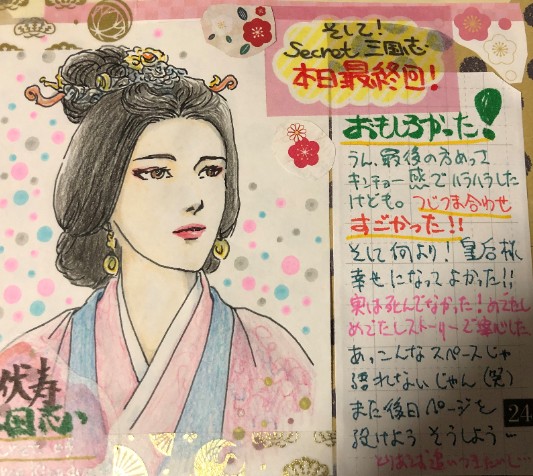 そして!
Secret 三国志
本日最終回!
おもしろかった!
うん、最後の方めって
キンチョー感でハラハラした
けども。つじつま合わせ
すごかった!!
そして何より!皇后様
幸せになってよかった!!
実は死んでなかった!めでたし
めでたしストーリーで安心した
あっこんなスペースじゃ
語れないじゃん(笑)
また後日ページを
設けよう そうしよう〜
伏寿
三国志
24